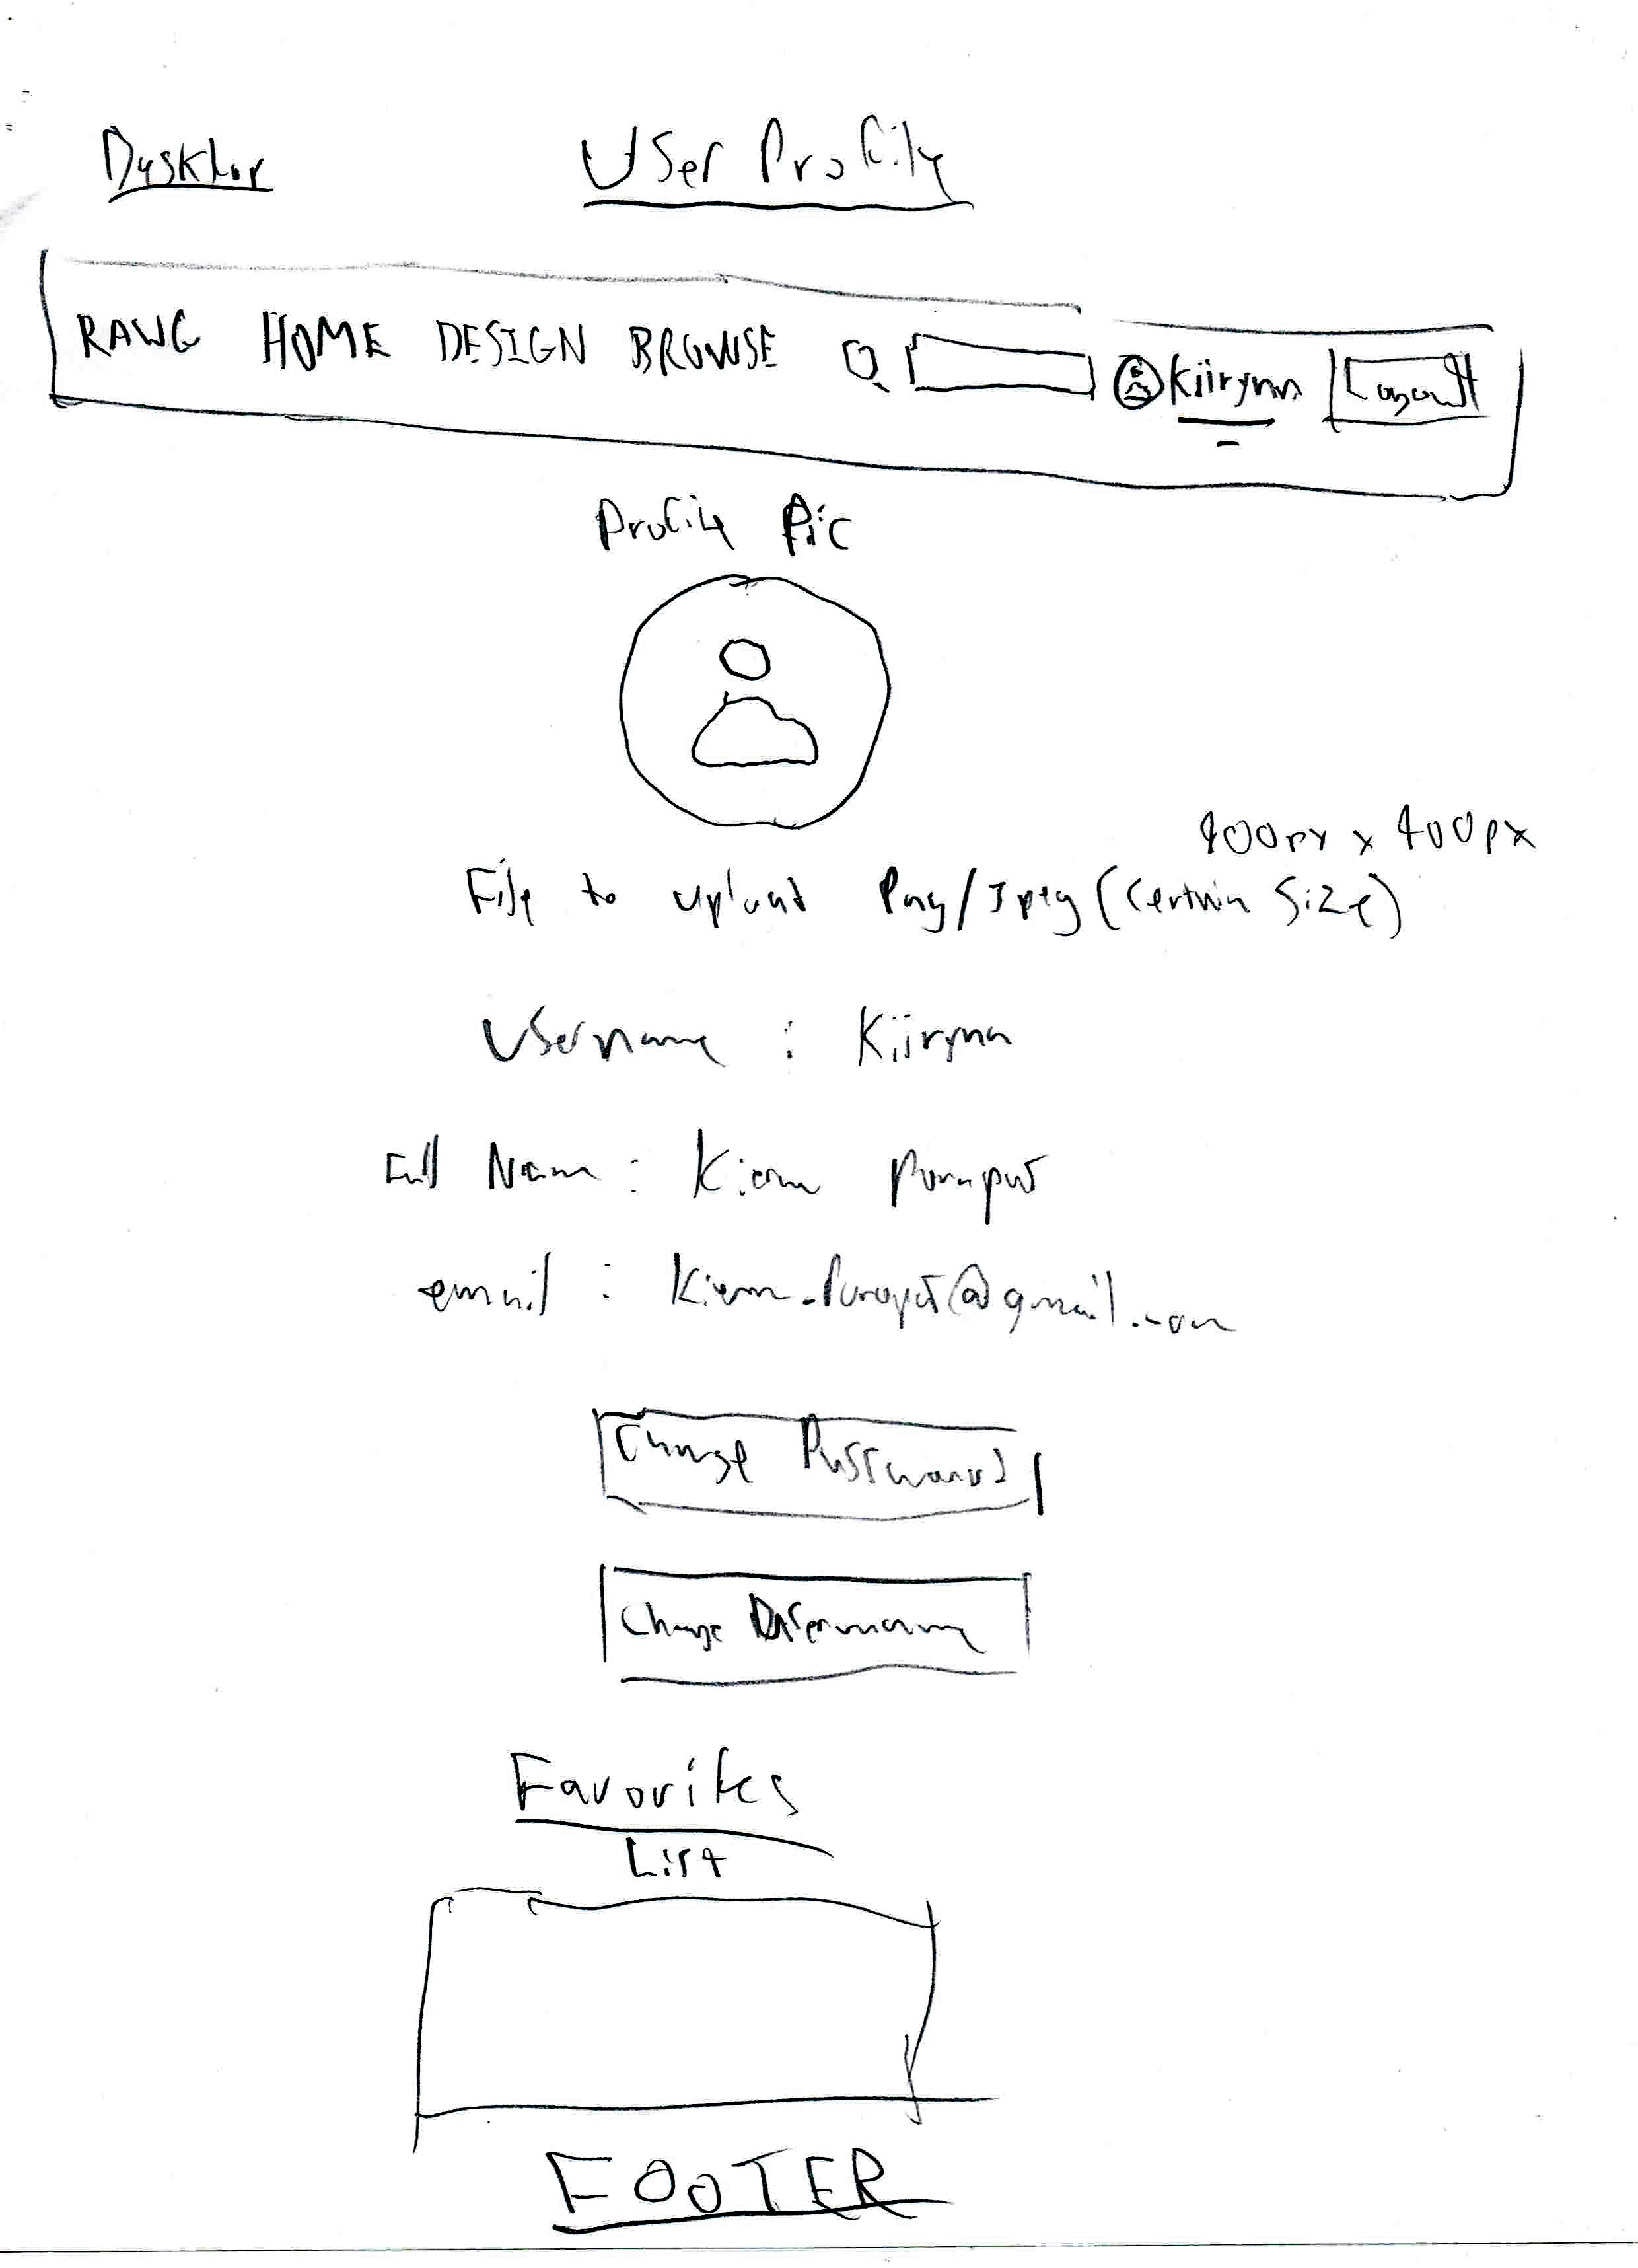 Desktop
User Profile
RAWG HOME DESIGN BROWSE Kiirynn Logout
Profile Pic
400px x 400px
File to upload Png/Jpeg (Certain Size)
Username : Kiirynn
Full Name :
email : @gmail.com
Change Password
Change Username
Favorites
List
FOOTER